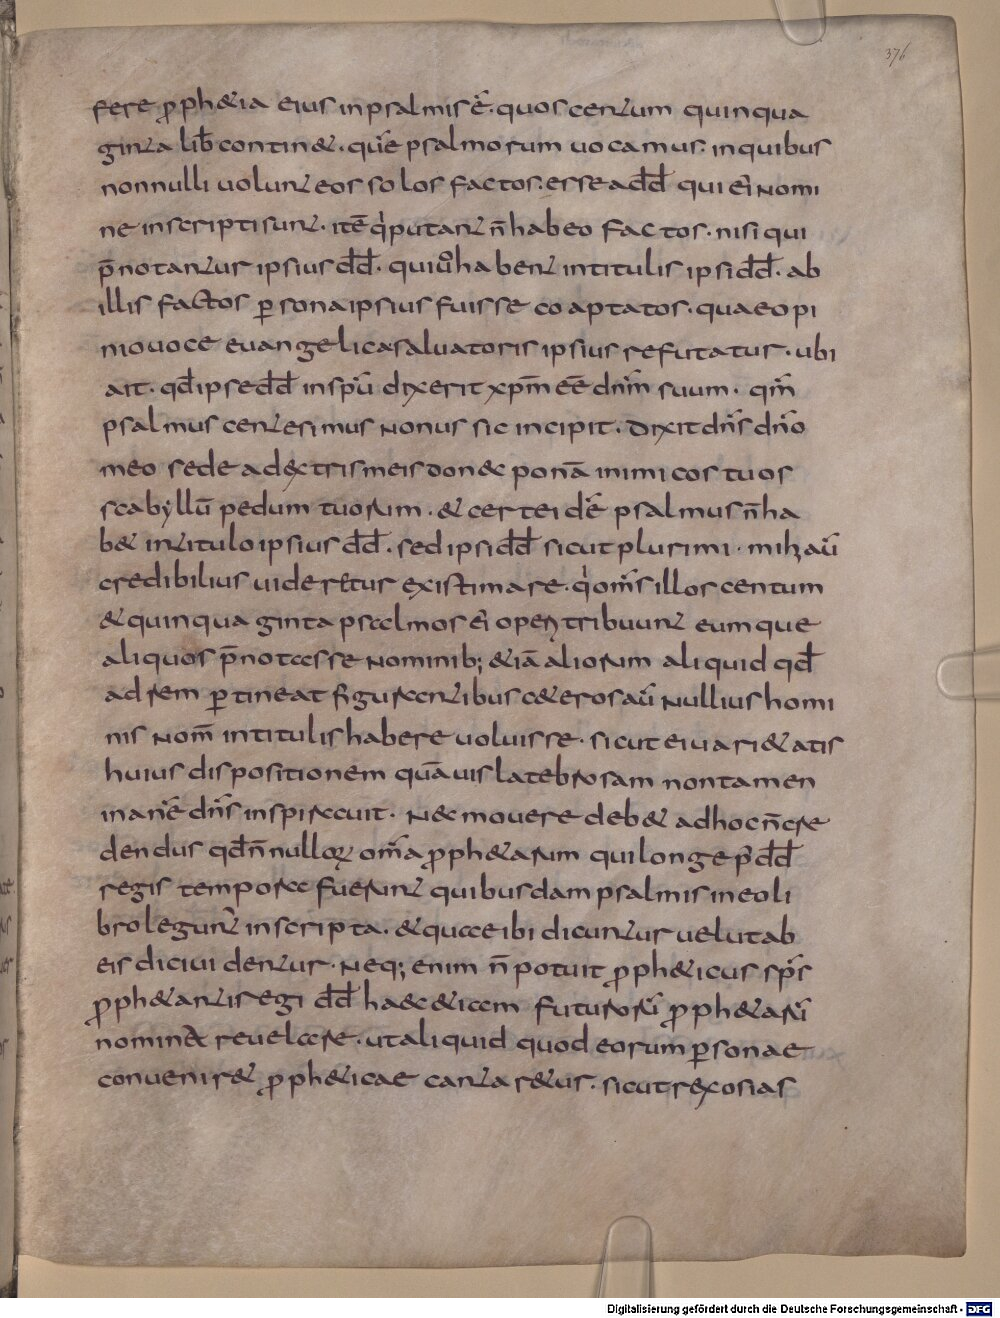 376
fere ꝓph&ia eius inpsalmis ē. quos centum quinqua
ginta lib̄ contin&. quē psalmorum uocamus. inquibus
nonnulli uolunt eos solos factos. esse a dd̄ qui ei nomi
ne inscripti sunt. itē q̇ putant n̄ habeo factos. nisi qui
p̄notantur ipsius dd̄. qui u͛o habent intitulis ipsi dd̄. ab
illis factos ꝑsona ipsius fuisse coaptatos. quae opi
nio uoce euangelica saluatoris ipsius refutatur. ubi
ait. qđ ipse dd̄ in spū dixerit xpm̄ eē dnm̄ suum. qm̄
psalmus centesimus nonus sic incipit. Dixit dns̄ dnō
meo sede adextris meis donec ponā inimicos tuos
scabyllū pedum tuorum. & certe idē psalmus n̄ ha
b& intitulo ipsius dd̄. sed ipsi dd̄ sicut plurimi. mihi aū
credibilius uideretur existimare. q̇ oms̄ illos centum
& quinquaginta psalmos ei operi tribuunt eumque
aliquos p̄notasse nominib; &iā aliorum aliquid qđ
ad rem ꝑtineat figurantibus c&eros aū nullius homi
nis nom̄ intitulis habere uoluisse. sicut ei uari&atis
huius dispositionem quāuis latebrosam non tamen
inanē dns̄ inspirauit. Nec mouere deb& ad hoc n̄ cre
dendus qđ n̄nulloꝝ omā ꝓph&arum qui longe p̄ dd̄
regis tempora fuerunt quibusdam psalmis in eo li
bro legunt̄ inscripta. & quae ibi dicuntur uelut ab
eis dici uidentur. Neq; enim n̄ potuit ꝓph&icus sps̄
ꝓph&anti regi dd̄ haec &iam futurorū ꝓph&arū
nomina reuelare. ut aliquid quod eorum ꝑsonae
conuenir& ꝓph&icae cantar&ur. sicut rex osias
Digitalisierung gefördert durch die Deutsche Forschungsgemeinschaft - DFG